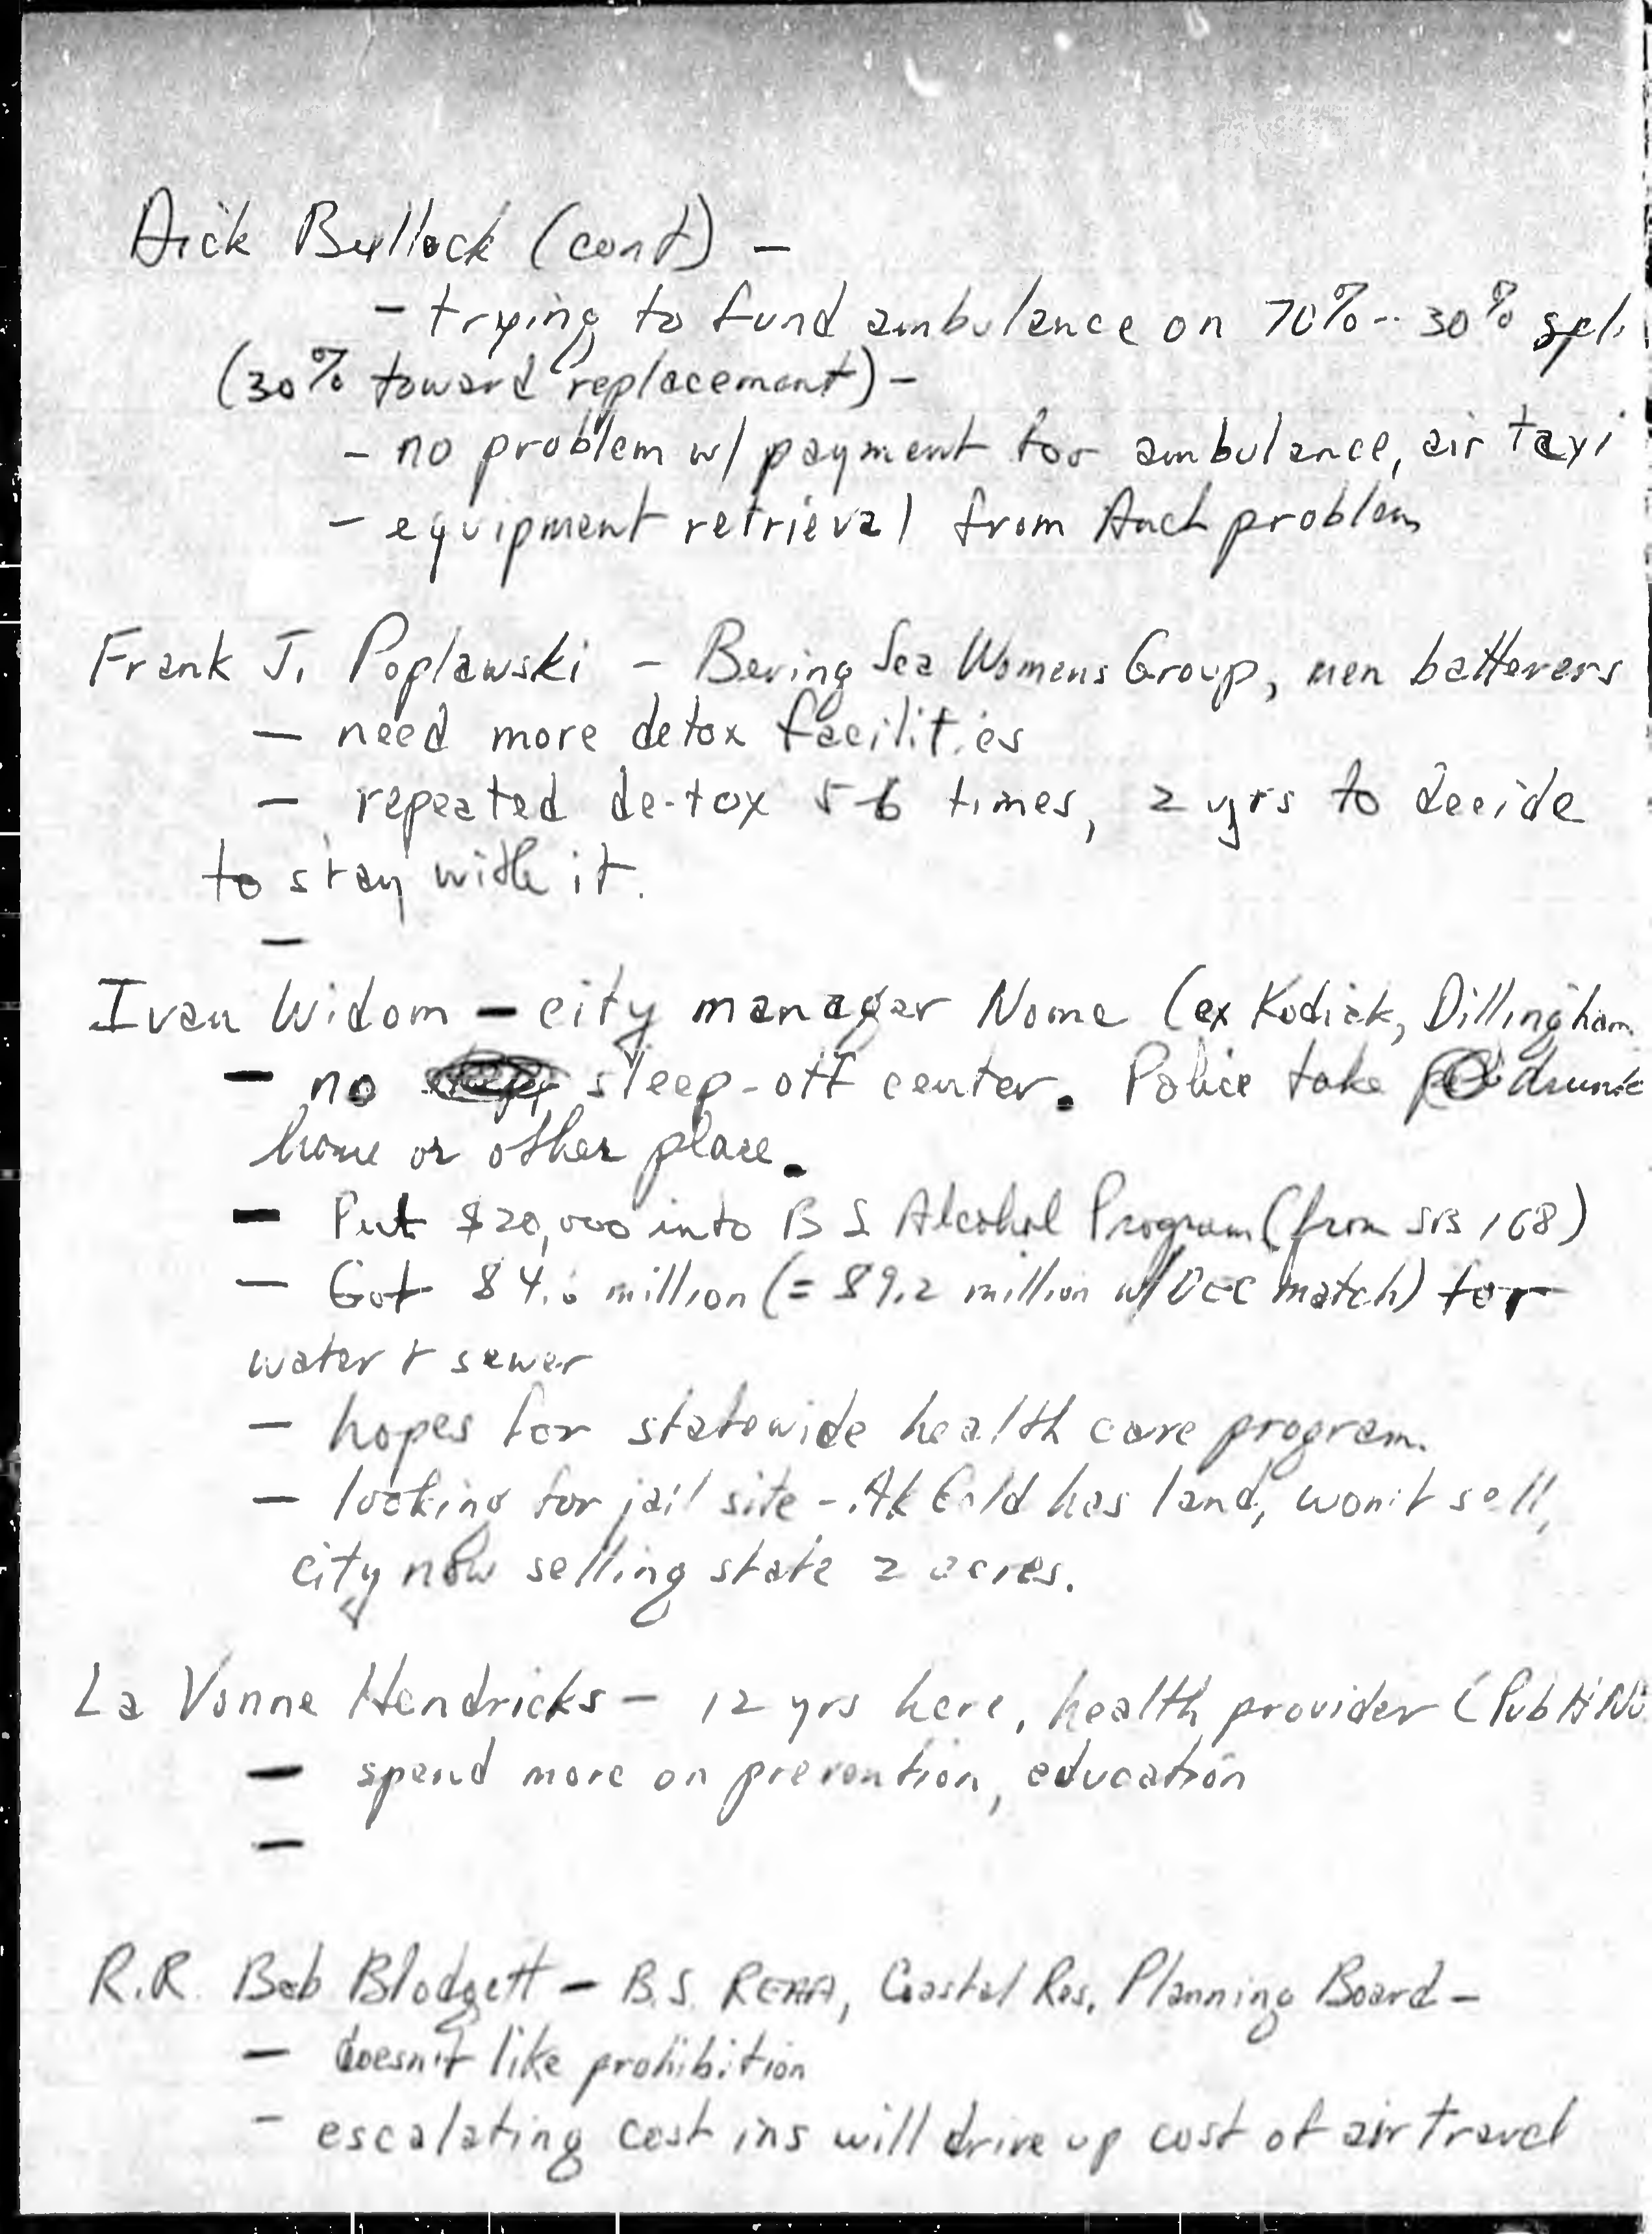 Dick Bullock (cont) -
- trying to fund ambulance on 70% - 30%
(30% toward replacement) -
- no problem w/ payment for ambulance, air taxi
- equipment retrieval from Anch problem
Frank J. Poplawski - Bering Sea Womens Group, men batterers
- need more detox facilities
- repeated de-tox 5-6 times, 2 yrs to decide
to stay with it.
-
Ivan Widom - city manager Nome (ex Kodiak, Dillingham
- no sleep-off center. Police take drunk
home or other place.
- Put $20,000 into B S Alcohol Program (from SB 168)
- Got $4.6 million (= $9.2 million w/ DEC match) for
water + sewer
- hopes for statewide health care program.
- looking for jail site - Ak Gold has land, won't sell,
city now selling state 2 acres.
La Vonne Hendricks - 12 yrs here, health provider (Pub H
- spend more on prevention, education
-
R.R. Bob Blodgett - B.S. REAA, Coastal Res. Planning Board -
- doesn't like prohibition
- escalating cost ins will drive up cost of air travel